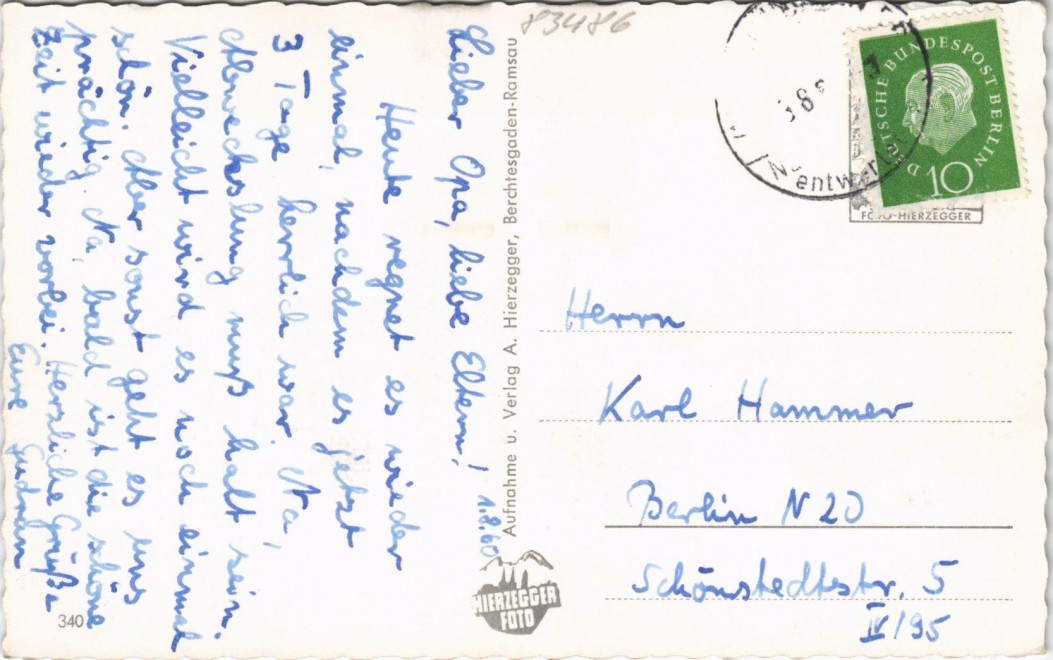 83486
Lieber Opa, liebe Eltern!
1.8.60
Heute regnet es wieder
einmal, nachdem es jetzt
3 Tage herrlich war. Na,
Abwechslung muß halt sein.
Vielleicht wird es noch einmal
schön. Aber sonst geht es uns
prächtig. Na, bald ist die schöne
Zeit wieder vorbei. Herzliche Grüße
Eure Gudrun
340
Aufnahme u. Verlag A. Hierzegger, Berchtesgaden-Ramsau
HIERZEGGER
FOTO
DEUTSCHE BUNDESPOST BERLIN
10
FOTO-HIERZEGGER
Herrn
Karl Hammer
Berlin N 20
Schönstedtstr. 5
IV/95